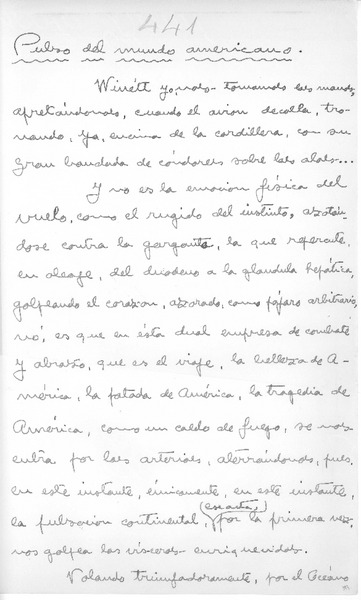 441
Pulso del mundo americano.
Winétt y nos tomándo las manos,
apretándonos, cuando el avión decolla, tro-
nando, ya, encima de la cordillera, con su
gran bandada de cóndores sobre las alas...
Y no es la emoción física del
vuelo, como el rugido del instinto, azotán-
dose contra la garganta, la que repercute
en oleaje, del duodeno a la glándula hepática,
golpeando el corazón, azorado, como pájaro arbitrario,
nó, es que en ésta dual empresa de combate
y abrazo, que es el viaje, la belleza de A-
mérica, la patada de América, la tragedia de
América, como un caldo de fuego, se nos
entra por las arterias, aterrándonos, pues
en este instante, únicamente, en este instante,
la pulsación continental, (exacta) por la primera vez,
nos golpea las vísceras enriquecidas.
Volando triunfadoramente, por el Océano